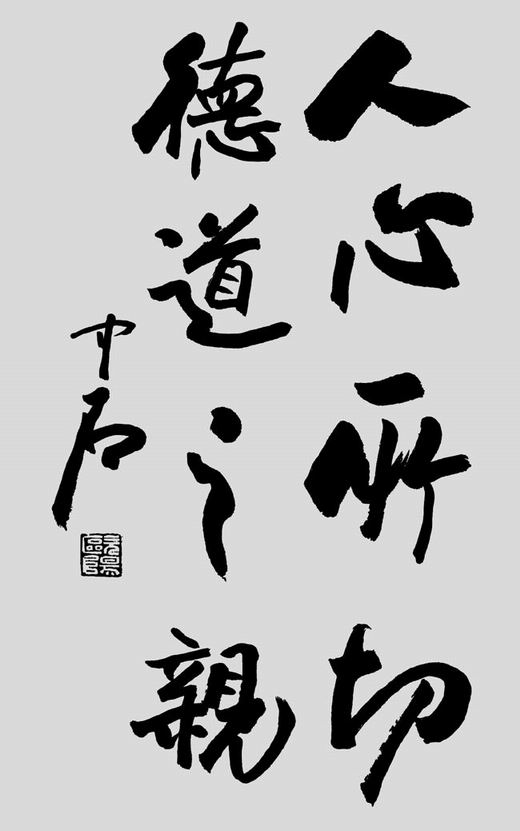 人心所切
德道之親
中石